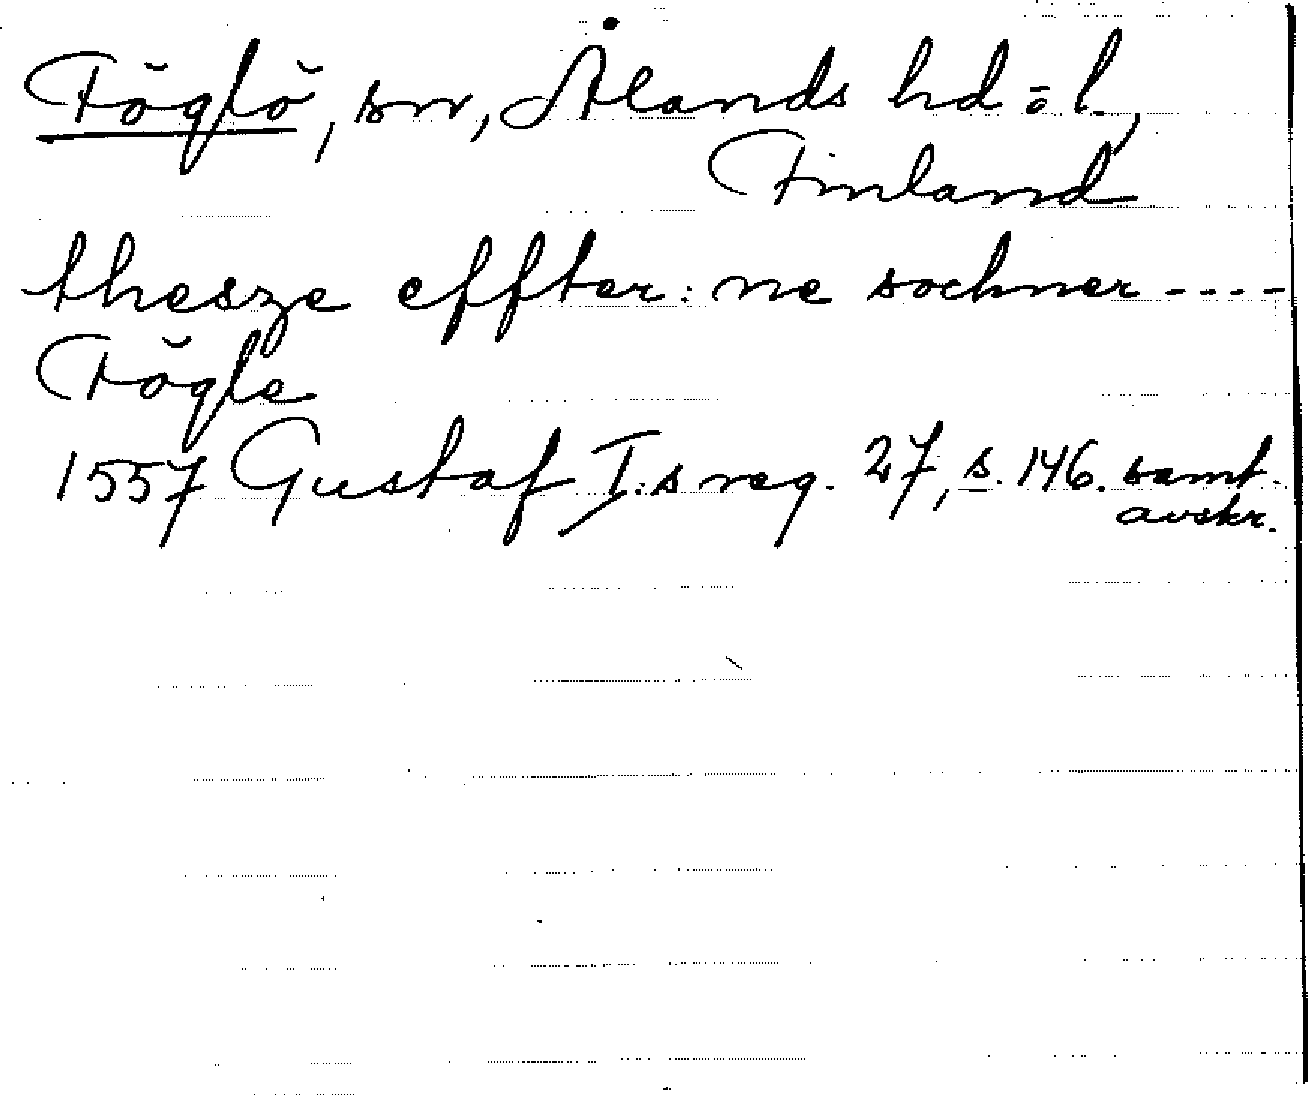 Föglö, sn, Ålands hd o. l.,
Finland
thesze effter: ne sochner ----
Fögle
1557 Gustaf I:s reg. 27, s. 146. samt.
avskr.